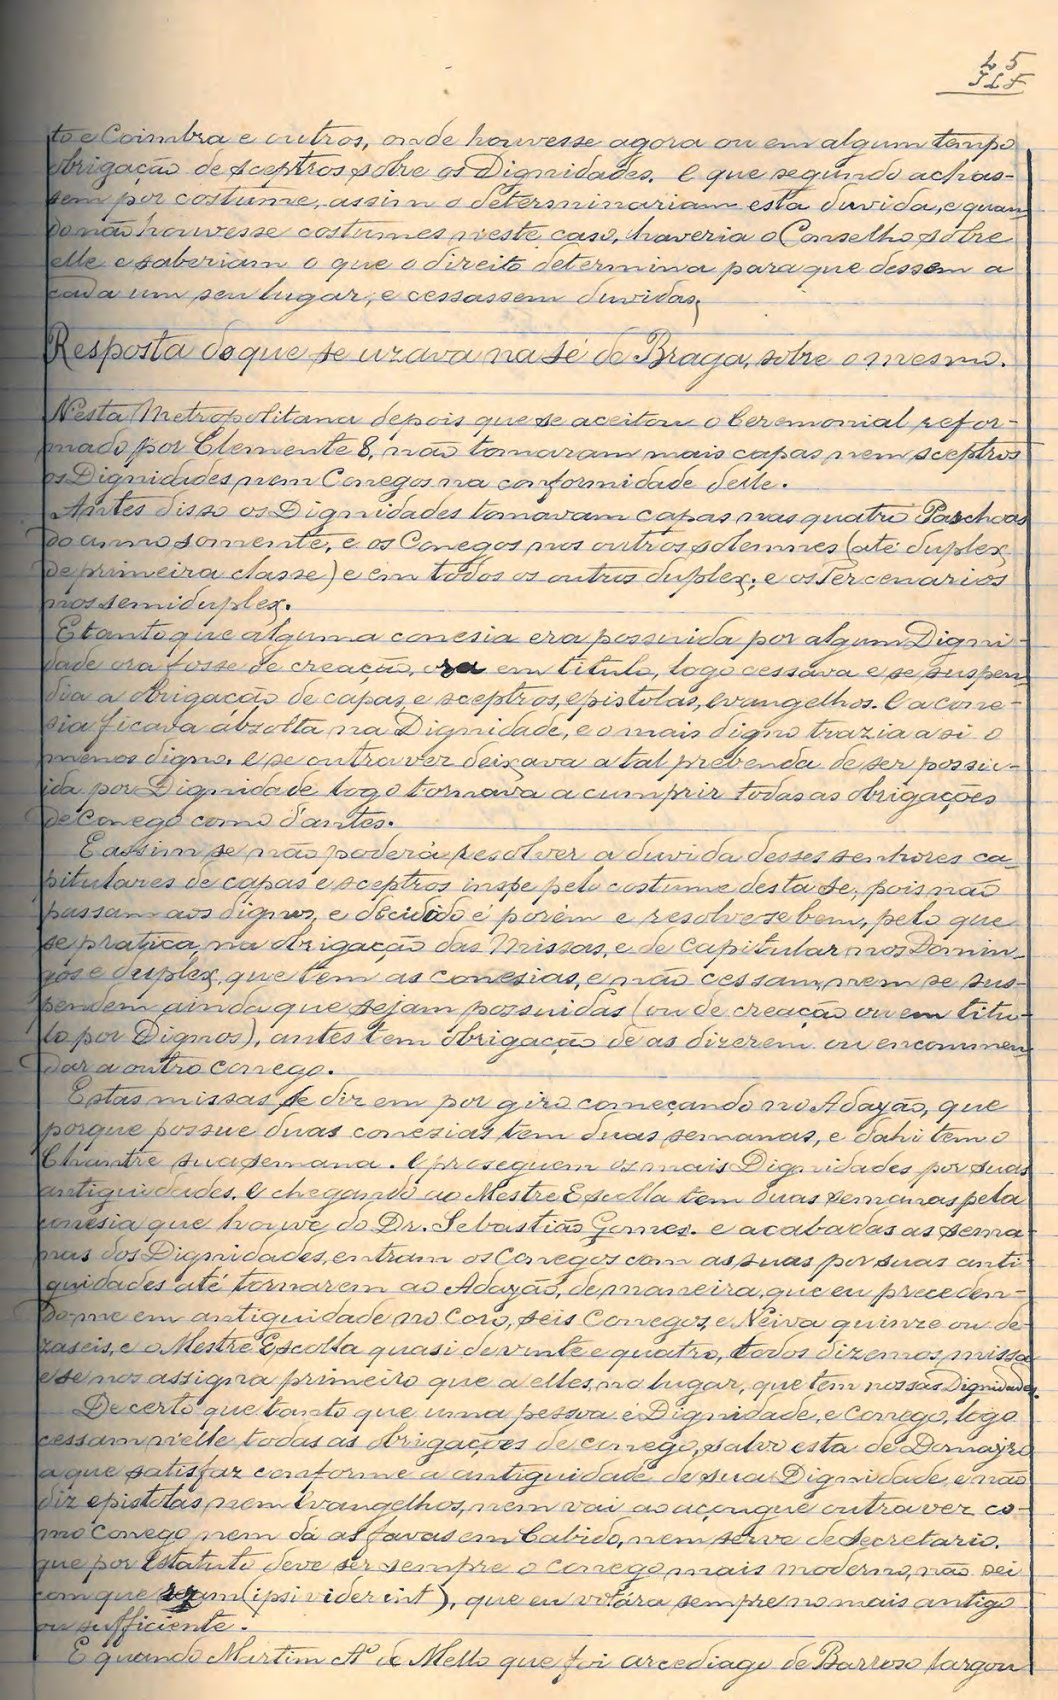 45
to e Coimbra e outros, onde houvesse agora ou em algum tempo
obrigação de sceptros sobre os Dignidades. E que segundo achas-
sem por costume, assim o determinariam esta duvida, e quan-
do não houvesse costumes n'este caso, haveria o Conselho sobre
elle e saberiam o que o direito determina para que dessem a
cada um seu lugar, e cessassem duvidas,
Resposta do que se uzava na Sé de Braga, sobre o mesmo.
N'esta Metropolitana depois que se aceitou o Ceremonial refor-
mado por Clemente 8, não tomaram mais capas nem sceptros
os Dignidades, nem Conegos na conformidade delle.
Antes disso os Dignidades tomavam capas nas quatro Paschoas
do anno somente, e os Conegos nos outros solemnes (até duplex
de primeira classe) e em todos os outros duplex; e os Tercenarios
nos semiduplex.
E tanto que alguma conesia era possuida por algum Digni-
dade ora fosse de creação, ora em titulo, logo cessava e se suspen-
dia a obrigação de capas, e sceptros, epistolas, evangelhos. E a cone-
sia ficava absolta na Dignidade, e o mais digno trazia a si o
menos digno. e se outra vez deixava a tal prebenda de ser possu-
ida por Dignidade logo tornava a cumprir todas as obrigações
de Conego como d'antes.
E assim se não poderá resolver a duvida desses senhores ca-
pitulares de capas e sceptros pelo costume desta Se, pois não
passam aos dignos, e decidido é porém e resolve se bem, pelo que
se pratica, na obrigação das Missas, e de Capitular nos Domin-
gos e duplex, que tem as conesias, e não cessam, nem se sus-
pendem ainda que sejam possuidas (ou de creação ou em titu-
lo por Dignos), antes tem obrigação de as dizerem ou encommen-
dar a outro conego.
Estas missas se dizem por giro começando no Adayão, que
porque possue duas conesias, tem duas semanas, e dahi tem o
Chantre sua semana. E proseguem os mais Dignidades por suas
antiguidades. E chegando ao Mestre Escolla tem duas semanas pela
conesia que houve do Dr. Sebastião Gomes. e acabadas as sema-
nas dos Dignidades, entram os Conegos com as suas por suas anti-
guidades até tornarem ao Adayão, de maneira, que eu preceden-
do-me em antiguidade no Coro, seis Conegos, e Neiva quinze ou de-
zaseis, e o Mestre Escolla quasi de vinte e quatro, todos dizemos, missa
e se nos assigna primeiro que a elles, no lugar, que tem nossas Dignidades.
De certo que tanto que uma pessoa é Dignidade, e Conego, logo
cessam n'elle todas as obrigações de conego, salvo esta de Domayro
a que satisfaz conforme a antiguidade de sua Dignidade, e não
diz epistolas, nem Evangelhos, nem vai ao açougue outra vez co-
mo Conego, nem dá as favas em Cabido, nem serve de Secretario,
que por Estatuto deve ser sempre o conego, mais moderno, não sei
com que (ipsi viderint), que eu votára sempre no mais antigo
ou sufficiente.
E quando Martim Aº de Mello que foi arcediago de Barroso largou